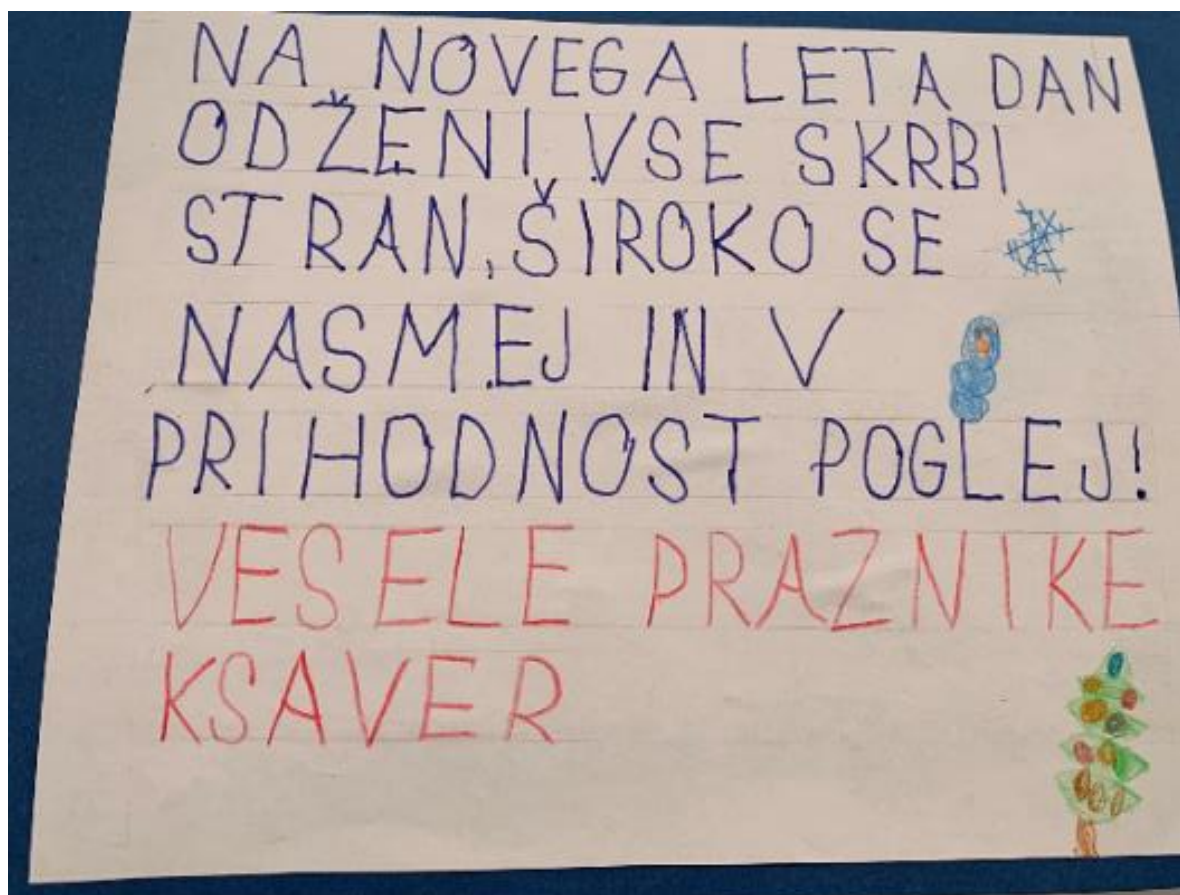 NA NOVEGA LETA DAN
ODŽENI VSE SKRBI
STRAN, ŠIROKO SE
NASMEJ IN V
PRIHODNOST POGLEJ!
VESELE PRAZNIKE
KSAVER